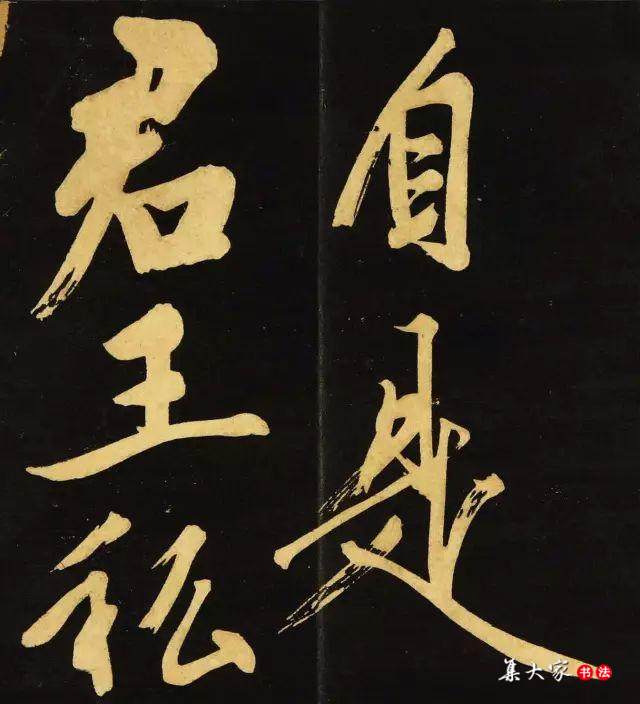 自是
君王私
集大家书法